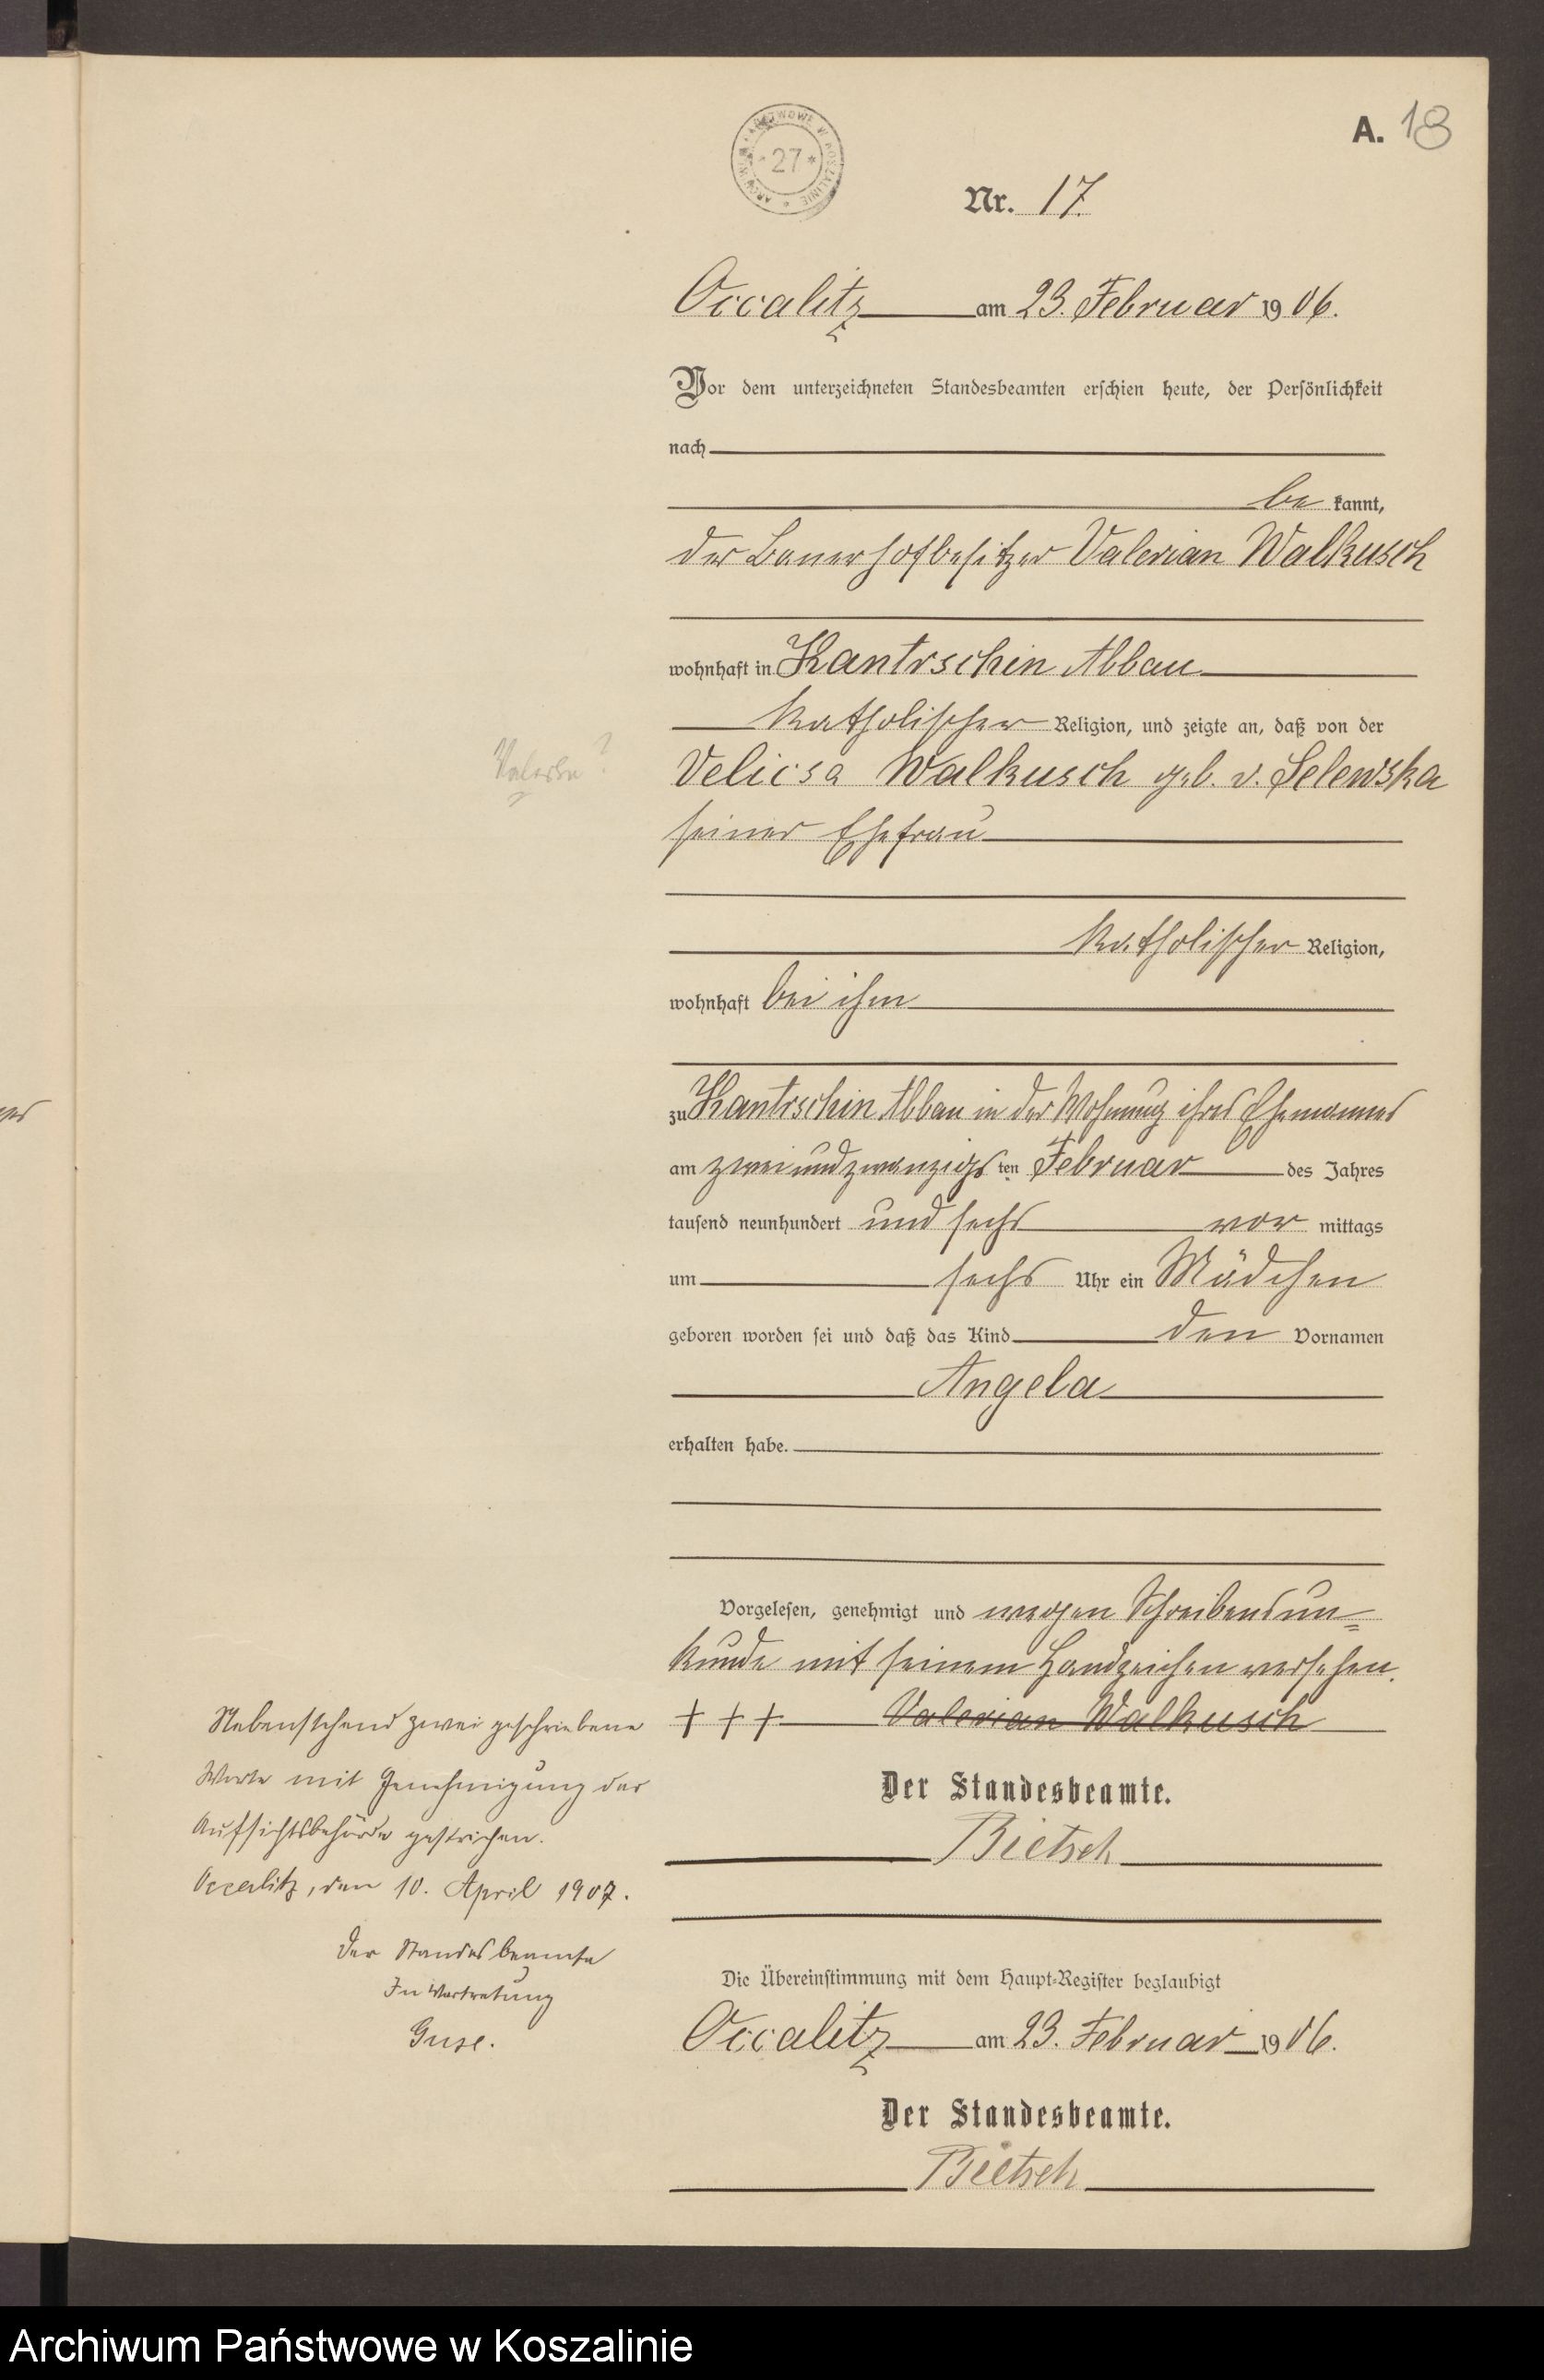 A. 18
ARCHIWUM PAŃSTWOWE W KOSZALINIE * 27 *
Nr. 17.
Occalitz am 23. Februar 1906.
Vor dem unterzeichneten Standesbeamten erschien heute, der Persönlichkeit
nach
be kannt,
der Bauerhofbesitzer Valerian Walkusch
wohnhaft in Kantrschin Abbau
katholischer Religion, und zeigte an, daß von der
Velicsa Walkusch geb. v. Selewska
seiner Ehefrau
katholischer Religion,
wohnhaft bei ihm
zu Kantrschin Abbau in der Wohnung ihres Ehemannes
am zweiundzwanzigs ten Februar des Jahres
tausend neunhundert und sechs vor mittags
um sechs Uhr ein Mädchen
geboren worden sei und daß das Kind den Vornamen
Angela
erhalten habe.
Vorgelesen, genehmigt und wegen Schreibensun=
kunde mit seinem Handzeichen versehen.
+ + + Valerian Walkusch
Der Standesbeamte.
Bietsch
Nebenstehend zwei geschriebene
Worte mit Genehmigung der
Aufsichtsbehörde gestrichen.
Occalitz, den 10. April 1907.
Der Standesbeamte
In Vertretung
Guse.
Die Übereinstimmung mit dem Haupt-Register beglaubigt
Occalitz am 23. Februar 1906.
Der Standesbeamte.
Bietsch
Archiwum Państwowe w Koszalinie